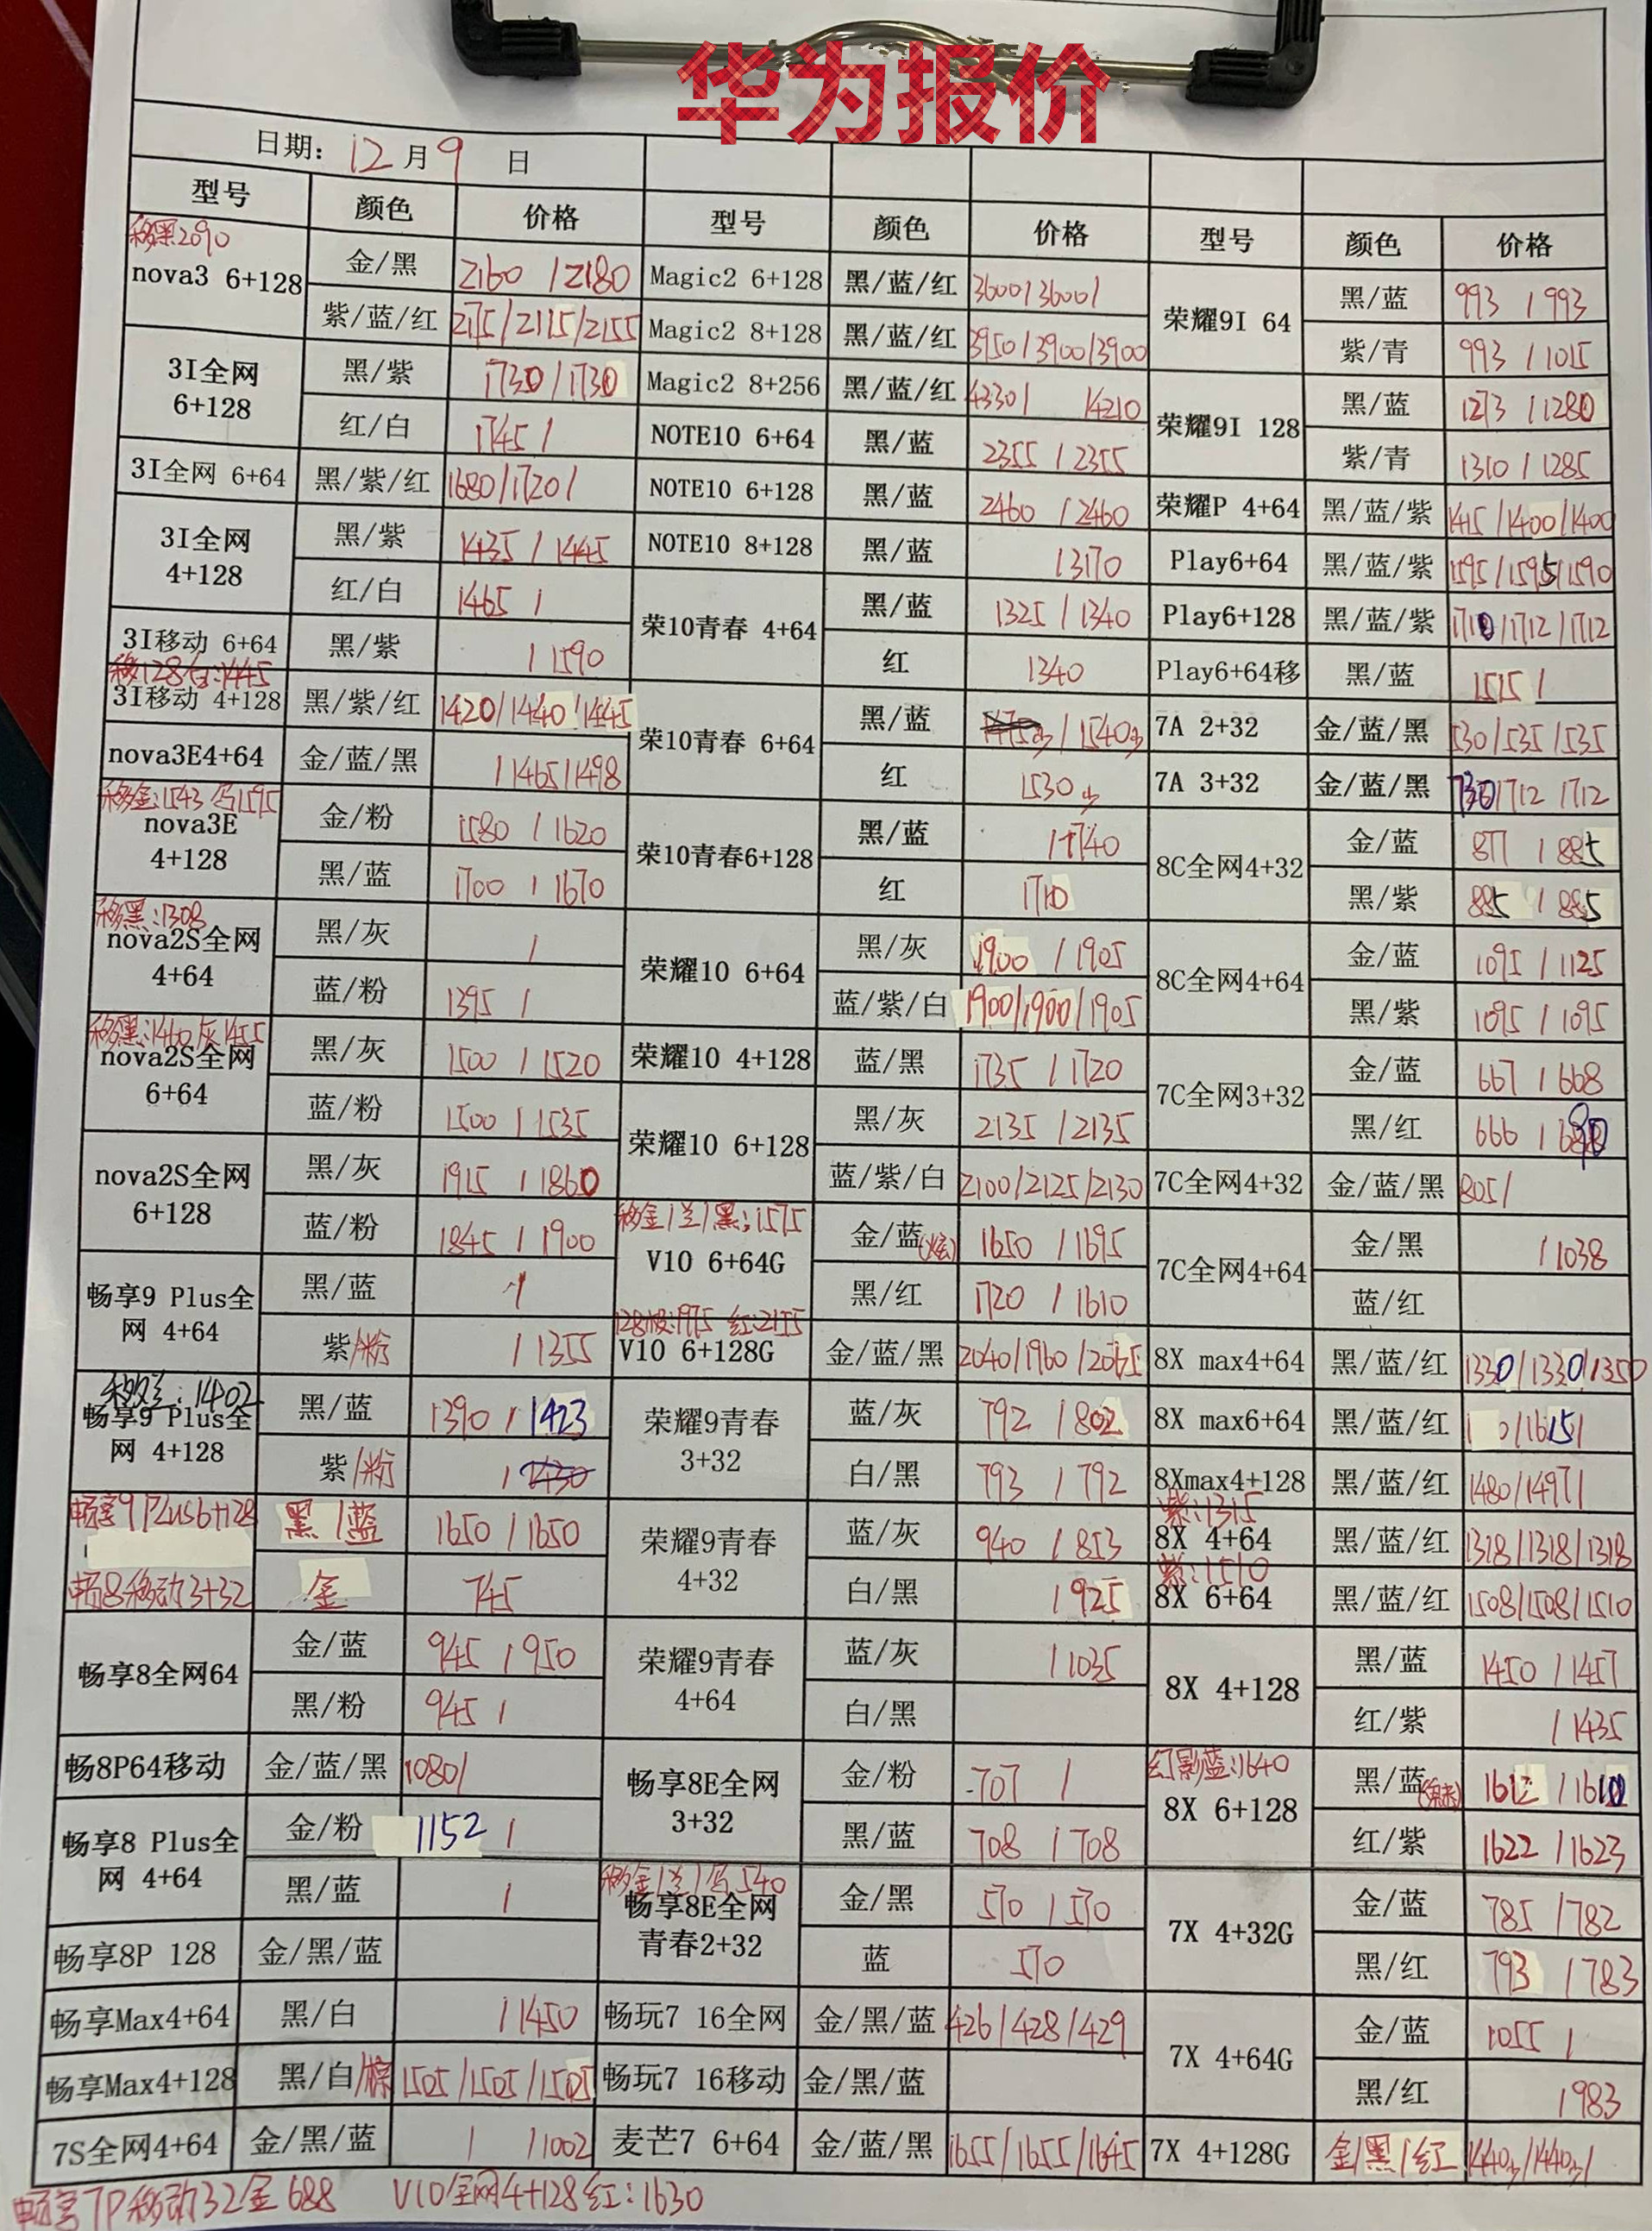 华为报价
日期: 12 月 9 日
型号 颜色 价格 型号 颜色 价格 型号 颜色 价格
移黑2090
nova3 6+128 金/黑 2160 / 2180
紫/蓝/红 2115/2115/2155
3I全网 6+128 黑/紫 1730/1730
红/白 1745 /
3I全网 6+64 黑/紫/红 1680/1720/
3I全网 4+128 黑/紫 1435 / 1445
红/白 1465 /
3I移动 6+64 黑/紫 / 1590
移128白:1445
3I移动 4+128 黑/紫/红 1420/1440/1445
nova3E4+64 金/蓝/黑 /1465/1498
移金:1543 1595
nova3E 4+128 金/粉 1580 / 1620
黑/蓝 1700 / 1670
移黑:1308
nova2S全网 4+64 黑/灰 /
蓝/粉 1395 /
移黑:1460/灰1455
nova2S全网 6+64 黑/灰 1500 / 1520
蓝/粉 1500 / 1535
nova2S全网 6+128 黑/灰 1915 / 1860
蓝/粉 1845 / 1900
畅享9 Plus全网 4+64 黑/蓝 /
紫/粉 / 1355
移兰:1402
畅享9 Plus全网 4+128 黑/蓝 1390 / 1423
紫/粉 /
畅享9Plus6+128 黑/蓝 1650 / 1650
畅8移动3+32 金 745
畅享8全网64 金/蓝 945 / 950
黑/粉 945 /
畅8P64移动 金/蓝/黑 1080/
畅享8 Plus全网 4+64 金/粉 1152 /
黑/蓝 /
畅享8P 128 金/黑/蓝
畅享Max4+64 黑/白 / 1450
畅享Max4+128 黑/白/棕 1505/1505/1505
7S全网4+64 金/黑/蓝 / /1002
Magic2 6+128 黑/蓝/红 3600/3600/
Magic2 8+128 黑/蓝/红 3950/3900/3900
Magic2 8+256 黑/蓝/红 4330/ /4210
NOTE10 6+64 黑/蓝 2355 / 2355
NOTE10 6+128 黑/蓝 2460 / 2460
NOTE10 8+128 黑/蓝 /3170
荣10青春 4+64 黑/蓝 1325 / 1340
红 1340
荣10青春 6+64 黑/蓝 / 1540少
红 1530少
荣10青春6+128 黑/蓝 /1740
红 1710
荣耀10 6+64 黑/灰 1900 / 1905
蓝/紫/白 1900/1900/1905
荣耀10 4+128 蓝/黑 1735 / 1720
荣耀10 6+128 黑/灰 2135 / 2135
蓝/紫/白 2100/2125/2130
移金/兰/黑:1575
V10 6+64G 金/蓝(炫) 1650 / 1695
黑/红 1720 / 1610
1975 红:2155
V10 6+128G 金/蓝/黑 2040/1960/2065
荣耀9青春 3+32 蓝/灰 792 / 802
白/黑 793 / 792
荣耀9青春 4+32 蓝/灰 940 / 853
白/黑 / 925
荣耀9青春 4+64 蓝/灰 / 1035
白/黑
畅享8E全网 3+32 金/粉 707 /
黑/蓝 708 / 708
移金/兰/ 540
畅享8E全网青春2+32 金/黑 570 / 570
蓝 570
畅玩7 16全网 金/黑/蓝 426/428/429
畅玩7 16移动 金/黑/蓝
麦芒7 6+64 金/蓝/黑 1655/1655/1645
荣耀9I 64 黑/蓝 993 / 993
紫/青 993 / 1015
荣耀9I 128 黑/蓝 1273 / 1280
紫/青 1310 / 1285
荣耀P 4+64 黑/蓝/紫 1415/1400/1400
Play6+64 黑/蓝/紫 1595/1595/1590
Play6+128 黑/蓝/紫 1710/1712/1712
Play6+64移 黑/蓝 1515 /
7A 2+32 金/蓝/黑 530/535/535
7A 3+32 金/蓝/黑 730/712/712
8C全网4+32 金/蓝 877 / 885
黑/紫 885 / 885
8C全网4+64 金/蓝 1095 / 1125
黑/紫 1095 / 1095
7C全网3+32 金/蓝 667 / 668
黑/红 666 /
7C全网4+32 金/蓝/黑 805/
7C全网4+64 金/黑 / 1038
蓝/红
8X max4+64 黑/蓝/红 1330/1330/1350
8X max6+64 黑/蓝/红 /1615/
8Xmax4+128 黑/蓝/红 1480/1497/
紫:1315
8X 4+64 黑/蓝/红 1318/1318/1318
紫:1510
8X 6+64 黑/蓝/红 1508/1508/1510
8X 4+128 黑/蓝 1450 / 1457
红/紫 / 1435
幻影蓝:1640
8X 6+128 黑/蓝 1612 / 1610
红/紫 1622 / 1623
7X 4+32G 金/蓝 785 / 782
黑/红 793 / 783
7X 4+64G 金/蓝 1055 /
黑/红 / 983
7X 4+128G 金/黑/红 1440少/1440少/
畅享7P移动32金688 V10全网4+128红:1630